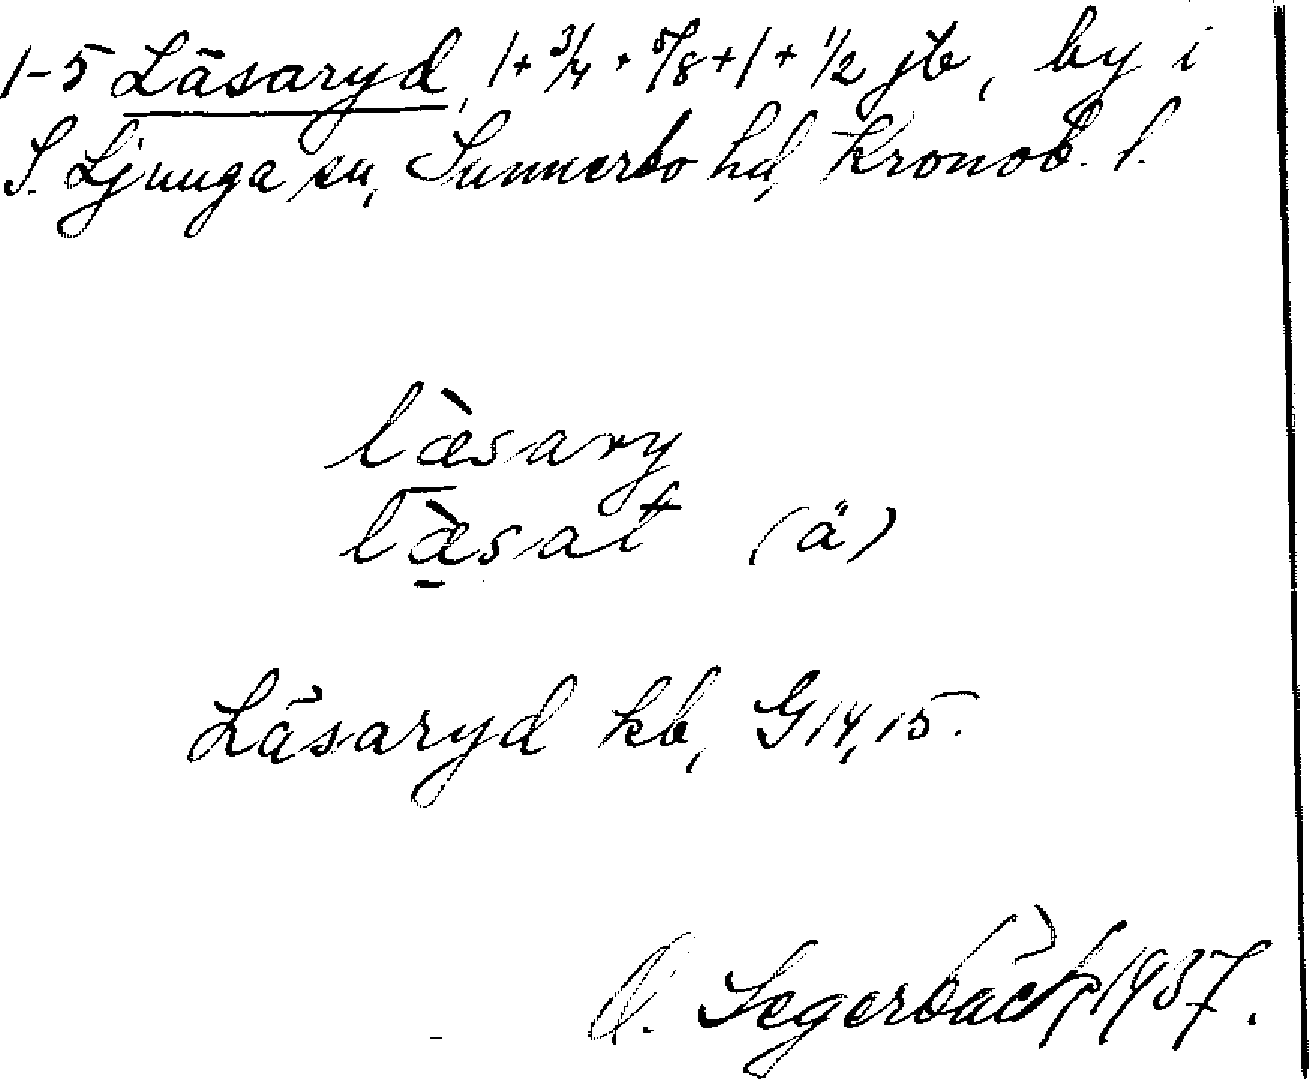 1-5 Läsaryd, 1+3/4+5/8+1+1/2 jb, by i
S. Ljunga sn, Sunnerbo hd, Kronob. l.
læ̀sary
læ̀sat (ä)
Läsaryd kb, G14,15.
O. Segerbäck 1937.